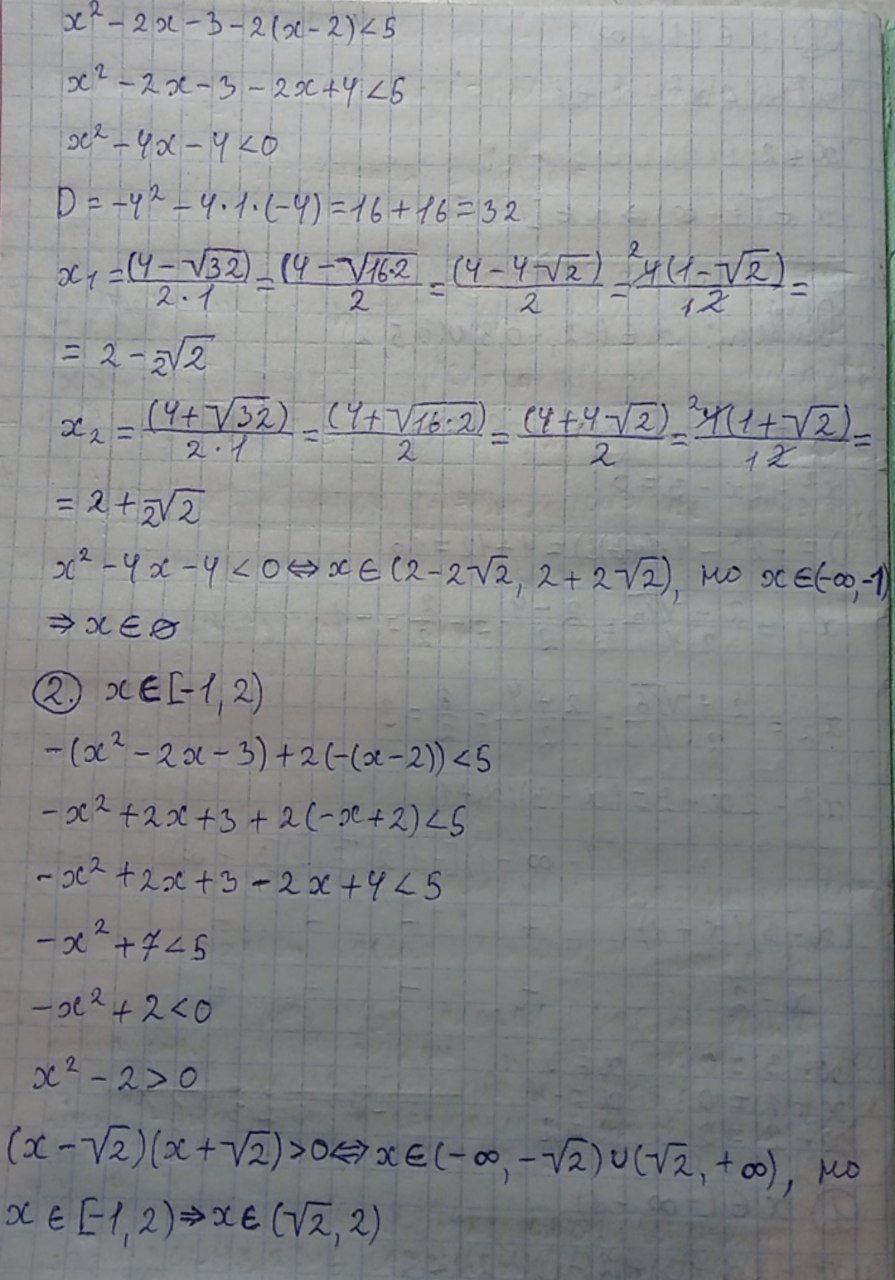 x² - 2x - 3 - 2(x - 2) < 5
x² - 2x - 3 - 2x + 4 < 5
x² - 4x - 4 < 0
D = -4² - 4·1·(-4) = 16 + 16 = 32
x₁ = (4 - √32)/(2·1) = (4 - √16·2)/2 = (4 - 4√2)/2 = ²4(1 - √2)/₁2 =
= 2 - 2√2
x₂ = (4 + √32)/(2·1) = (4 + √16·2)/2 = (4 + 4√2)/2 = ²4(1 + √2)/₁2 =
= 2 + 2√2
x² - 4x - 4 < 0 ⇔ x ∈ (2 - 2√2, 2 + 2√2), но x ∈ (-∞, -1)
⇒ x ∈ ∅
2. x ∈ [-1, 2)
-(x² - 2x - 3) + 2(-(x - 2)) < 5
-x² + 2x + 3 + 2(-x + 2) < 5
-x² + 2x + 3 - 2x + 4 < 5
-x² + 7 < 5
-x² + 2 < 0
x² - 2 > 0
(x - √2)(x + √2) > 0 ⇔ x ∈ (-∞, -√2) ∪ (√2, +∞), но
x ∈ [-1, 2) ⇒ x ∈ (√2, 2)